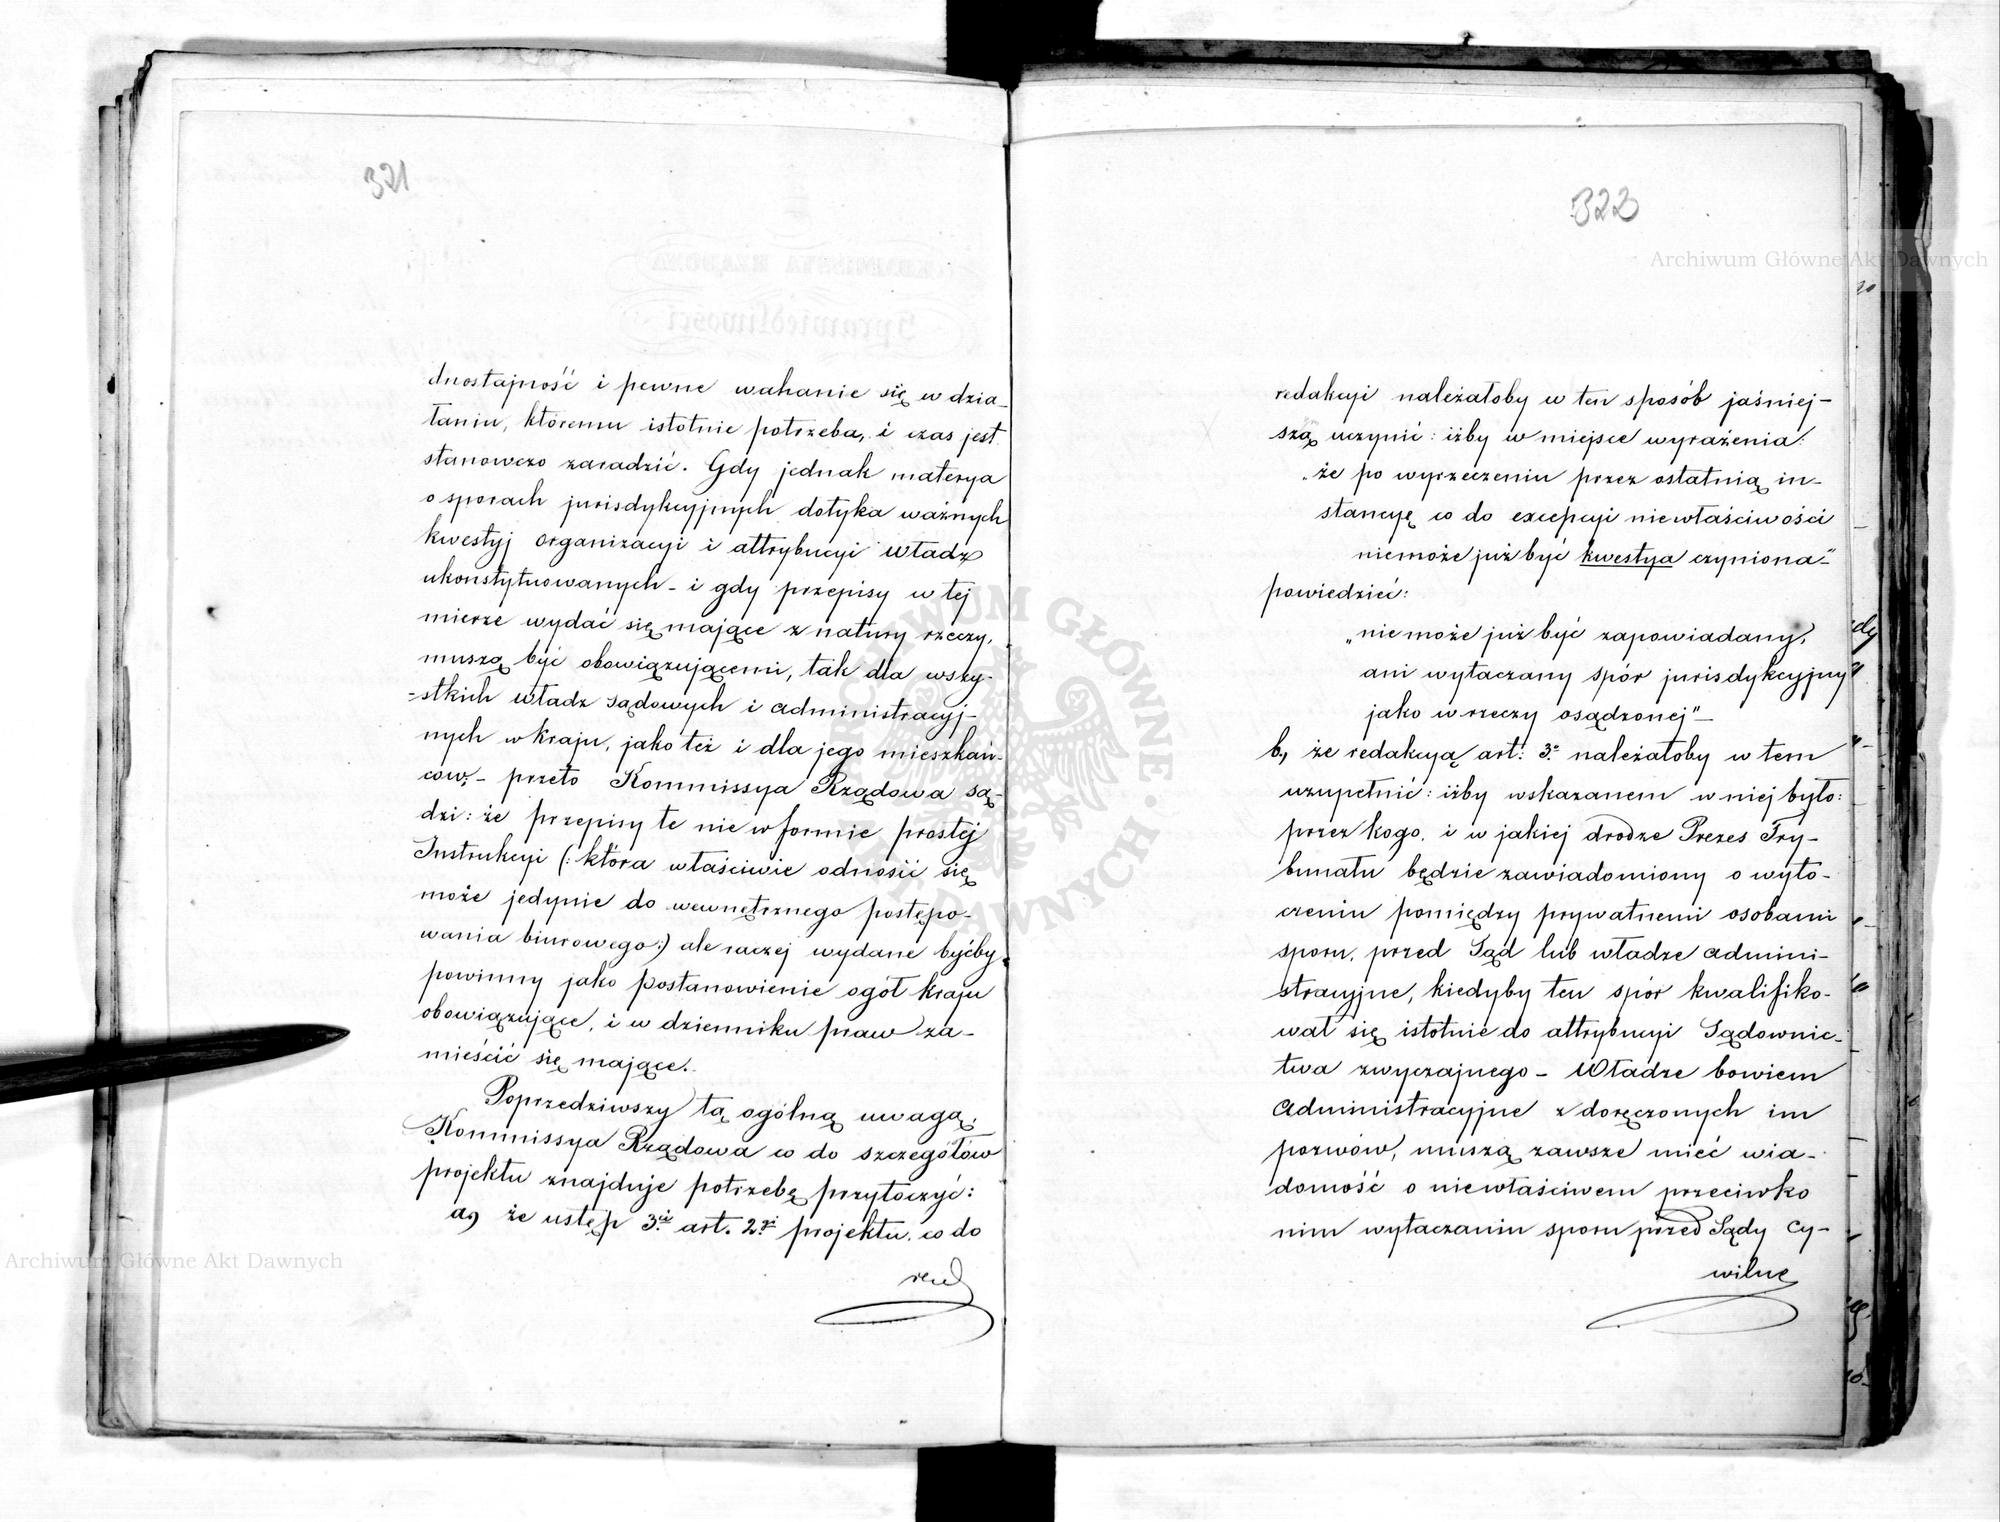 321
dnostajność i pewne wahanie się w dzia-
łaniu, któremu istotnie potrzeba, i czas jest
stanowczo zaradzić. Gdy jednak materya
o sporach jurisdykcyjnych dotyka ważnych
kwestyj organizacyi i attrybucyi władz
ukonstytuowanych - i gdy przepisy w tej
mierze wydać się mające z natury rzeczy,
muszą być obowiązującemi, tak dla wszy-
=stkich władz sądowych i administracyj-
nych w kraju, jako też i dla jego mieszkań-
ców; - przeto Kommissya Rządowa są-
dzi: że przepisy te nie w formie prostej
Instrukcyi (: która właściwie odnosić się
może jedynie do wewnętrznego postępo-
wania biurowego:) ale raczej wydane byćby
powinny jako postanowienie ogół kraju
obowiązujące, i w dzienniku praw za-
mieścić się mające.
Poprzedziwszy tą ogólną uwagą,
Kommissya Rządowa co do szczegółów
projektu znajduje potrzebę przytoczyć:
a, że ustęp 3ci art. 2gi projektu, co do
red
322
redakcyi należałoby w ten sposób jaśniej-
szą uczynić: iżby w miejsce wyrażenia:
"że po wyrzeczeniu przez ostatnią in-
stancyę co do excepcyi niewłaściwości
niemoże już być kwestya czyniona"
powiedzieć:
"nie może już być zapowiadany,
ani wytaczany spór jurisdykcyjny
jako w rzeczy osądzonej"-
b, że redakcyą art: 3o należałoby w tem
uzupełnić: iżby wskazanem w niej było:
przez kogo, i w jakiej drodze Prezes Try-
bunału będzie zawiadomiony o wyto-
czeniu pomiędzy prywatnemi osobami
sporu, przed Sąd lub władze admini-
stracyjne, kiedyby ten spór kwalifiko-
wał się istotnie do attrybucyi Sądownic-
twa zwyczajnego - Władze bowiem
administracyjne z doręczonych im
pozwów, muszą zawsze mieć wia-
domość o niewłaściwem przeciwko
nim wytaczaniu sporu przed Sądy cy-
wilne
Archiwum Główne Akt Dawnych
Archiwum Główne Akt Dawnych
ARCHIWUM GŁÓWNE AKT DAWNYCH